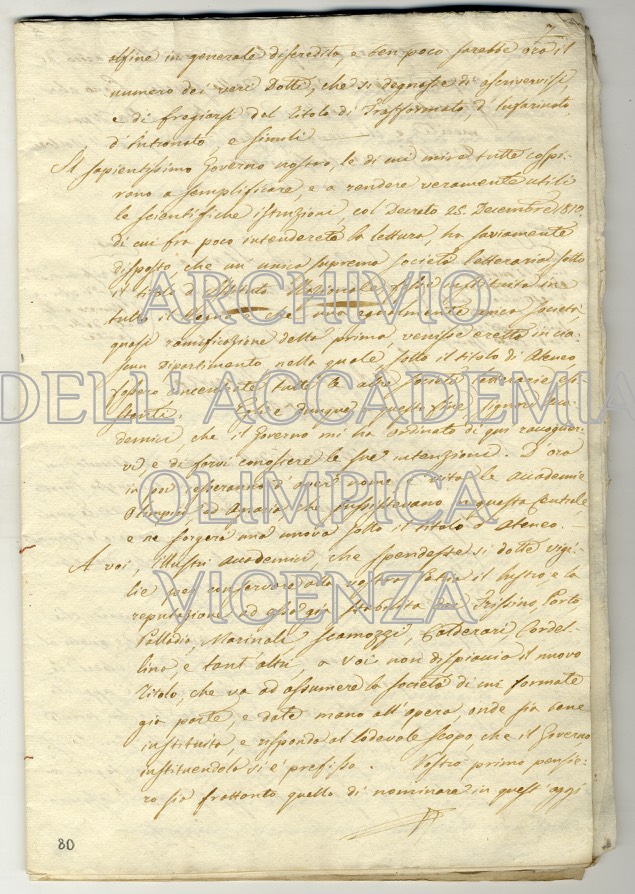 alfine in generale discredito, e ben poco sarebbe ora il
numero dei veri Dotti, che si degnasse di ascrivervisi,
e di fregiarsi del titolo di Trasformato, d'Infarinato
d'Intronato, e simili
Il sapientissimo Governo nostro, le di cui mire tutte cospi-
rano a semplificare, e a rendere veramente utili
le scientifiche istruzioni, col Decreto 25. Decembre 1810,
di cui fra poco intenderete la lettura, ha saviamente
disposto che un'unica suprema società letteraria sotto
il titolo d' Nazionale fosse instituita in
tutto il Regno che una egualmente unica Società,
quasi ramificazione della prima venisse eretta in cia-
scun Dipartimento nella quale sotto il titolo di Ateneo
fossero tutte le altre Società letterarie esi-
stenti. dunque a questo fine Signori Acca-
demici che il Governo mi ha ordinato di qui raccoglier-
vi e di farvi conoscere le sue intenzioni. D'ora
in poi cesseranno d'aver nome e vita le accademie
Olimpica, ed Agraria che sussistevano in questa Centrale
e ne sorgerà una nuova sotto il titolo d'Ateneo.
A voi, Illustri Academici, che spendeste sì dotte vigi-
lie per conservare alla vostra Patria il lustro e la
reputazione ad essa già stabilita dai Trissino Porto
Palladio, Marinali Scamozzi, Calderari Cordel-
lina, e tant'altri, a Voi non dispiaccia il nuovo
titolo, che va ad assumere la società di cui formate
già parte, e date mano all'opera, onde sia bene
instituita, e risponda al lodevole scopo, che il Governo
instituendola si è prefisso. Vostro primo pensie-
ro sia frattanto quello di nominare in quest'oggi
80
ARCHIVIO
DELL'ACCADEMIA
OLIMPICA
VICENZA